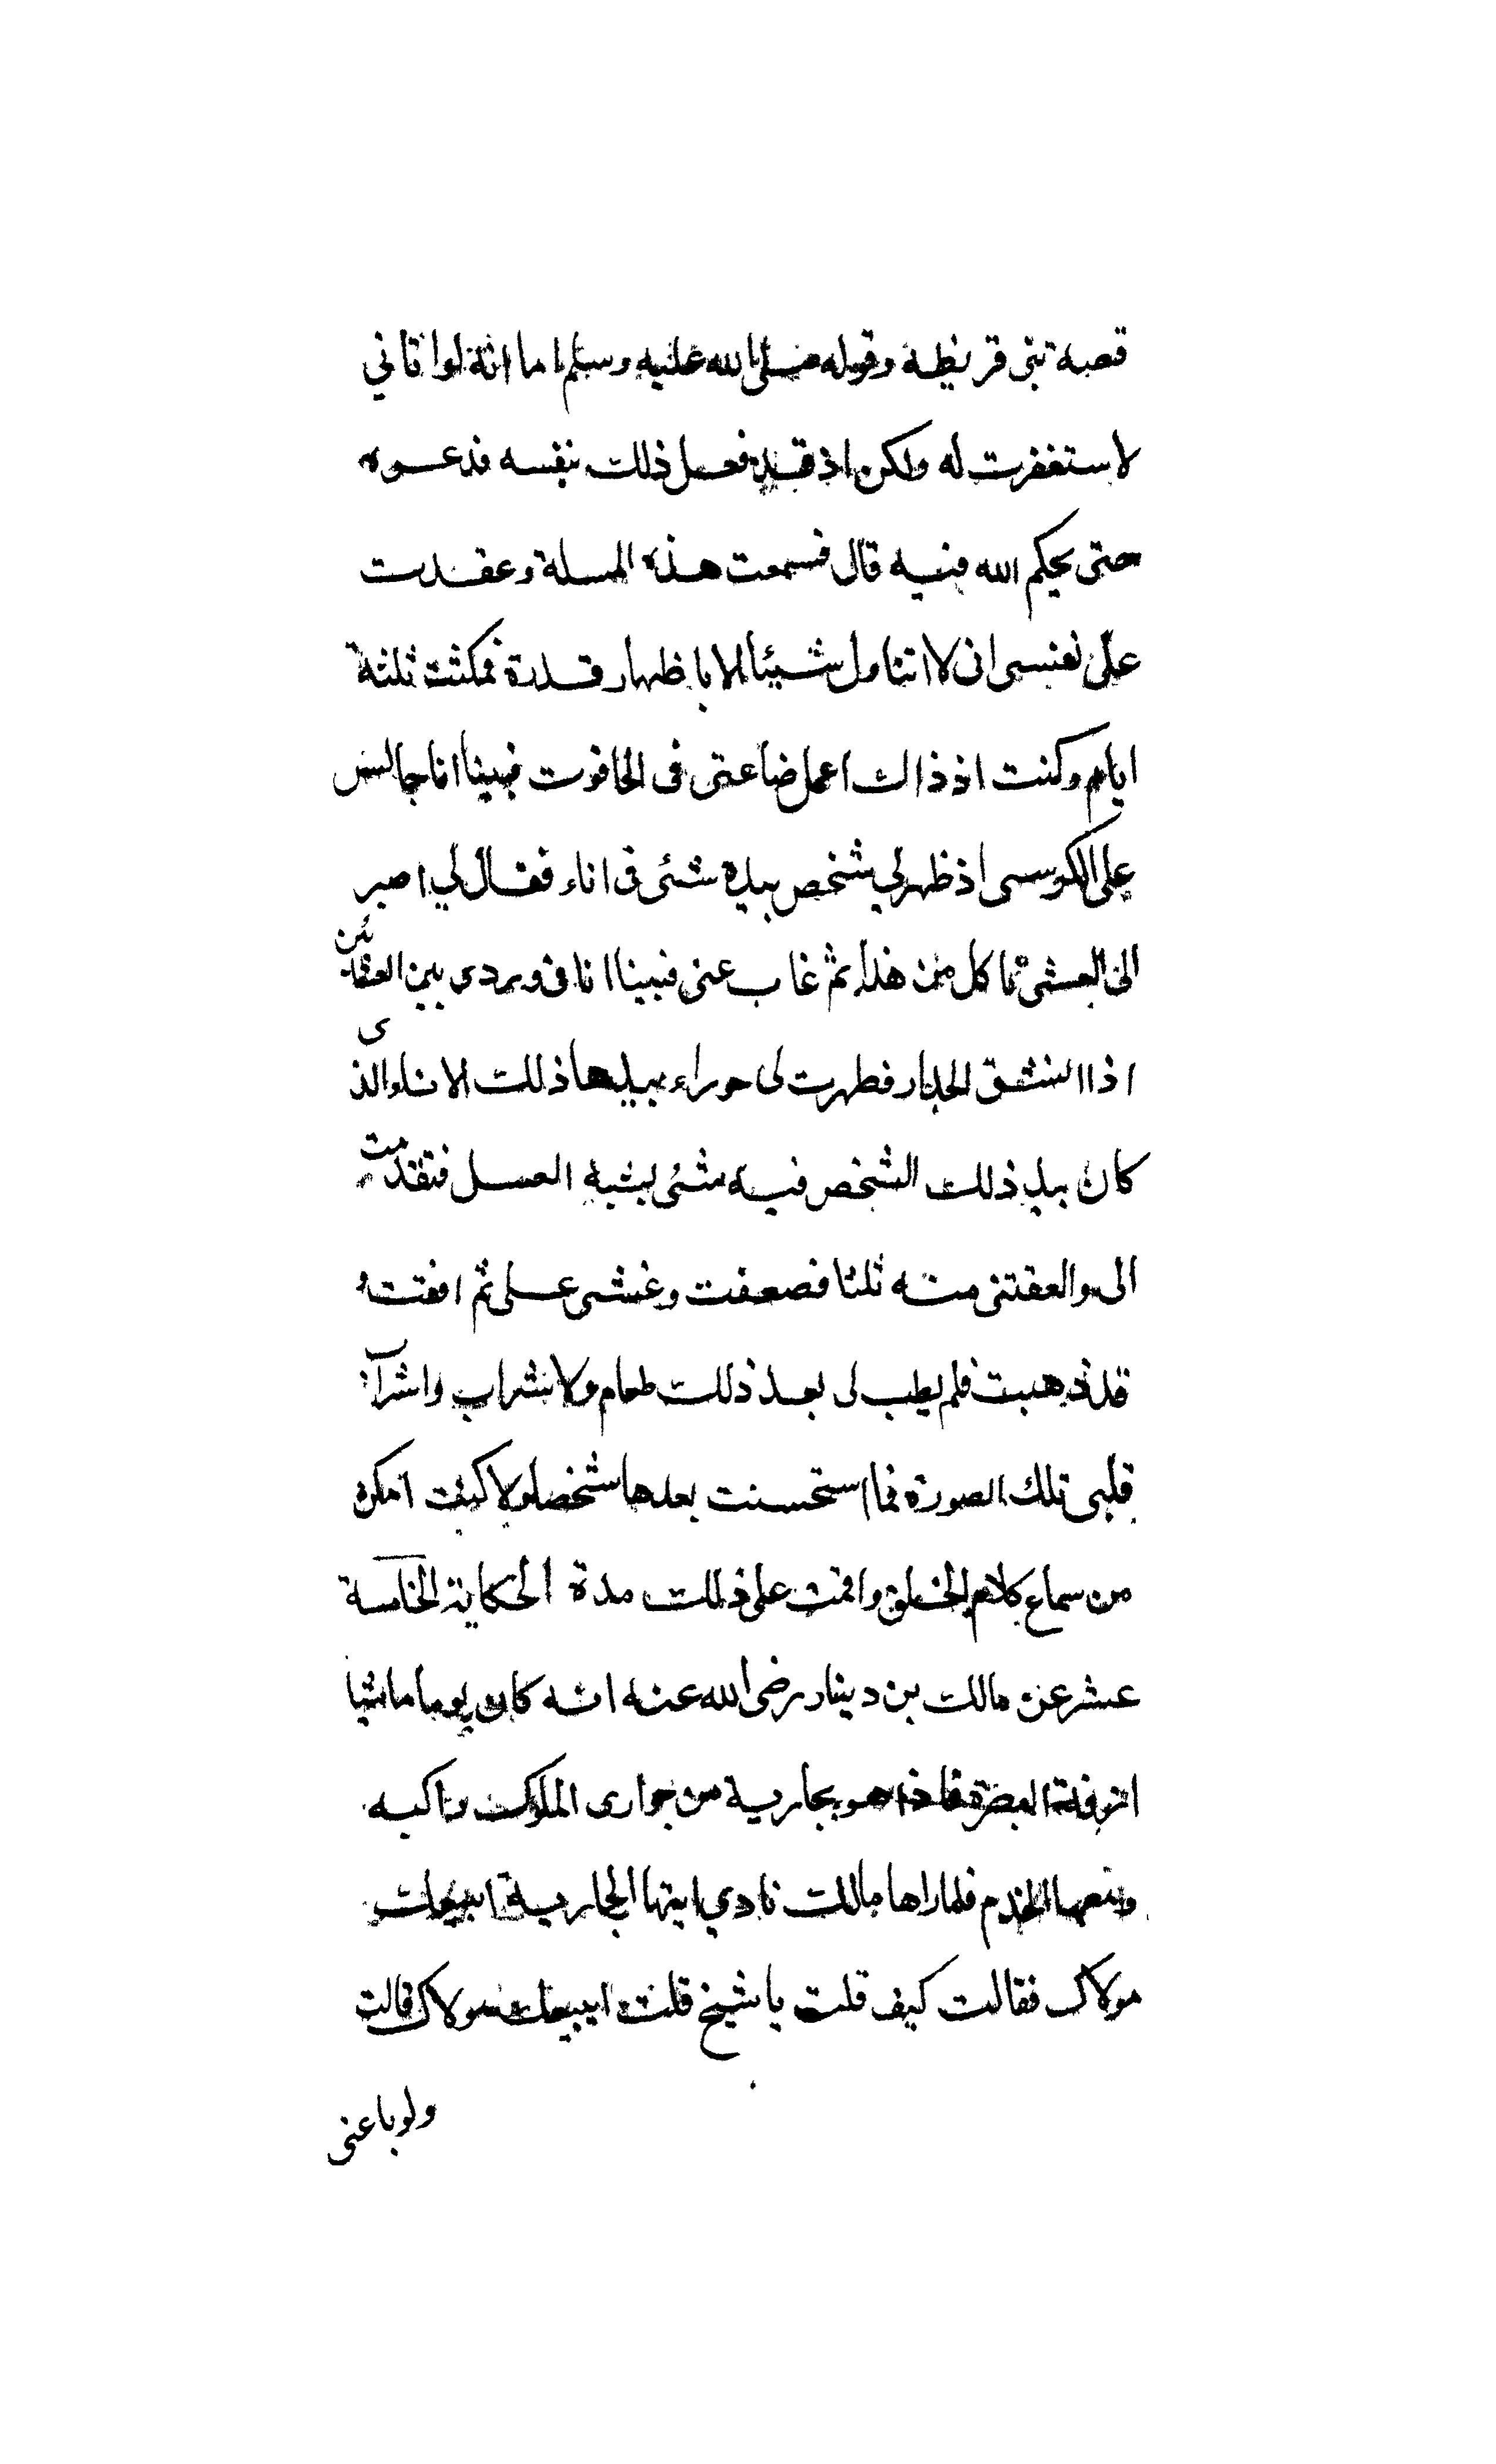 قصة بنى قريظة وقوله صلى الله عليه وسلم اما انه لوا تاني
لاستغفرت له ولكن اذ قد فعل ذلك بنفسه فدعوه
حتى يحكم الله فيه قال فسمعت هذه المسلة وعقدت
على نفسى انى لا اتناول شيئا الا باظهار قدرة فمكثت ثلثة
ايام وكنت اذ ذاك اعمل ضاعتى فى الحانوت فبينا انا جالس
على الكوسى اذ ظهرلي شخص بيده شئى فى اناء فقال لي اصبر
الى العشى تاكل من هذا ثم غاب عنى فبينا انا فى وردى بين العشائين
اذا انشق الجدار فظهرت لى حوراء بيدها ذلك الاناء الذى
كان بيد ذلك الشخص فيه شئى يشبه العسل فتقدمت
الى والعقتنى منه ثلثا فصعقت وغشى على ثم افقت و
قد ذهبت فلم يطب لى بعد ذلك طعام ولا شراب واشراب
قلبى تلك الصورة فما استحسنت بعدها شخصا ولا كنت امكن
من سماع كلام الخلق واقمت على ذلك مدة الحكاية الخامسة
عشر عن مالك بن دينار رضى الله عنه انه كان يوما ماشيا
فى ازقة البصرة فاذا هو بجارية من جوارى الملوك راكبه
ومعها الخدم فلما راها مالك نادي ايتها الجارية ايبيعك
مولاك فقالت كيف قلت يا شيخ قلت ايبيعك مولاك قالت
ولو باعنى